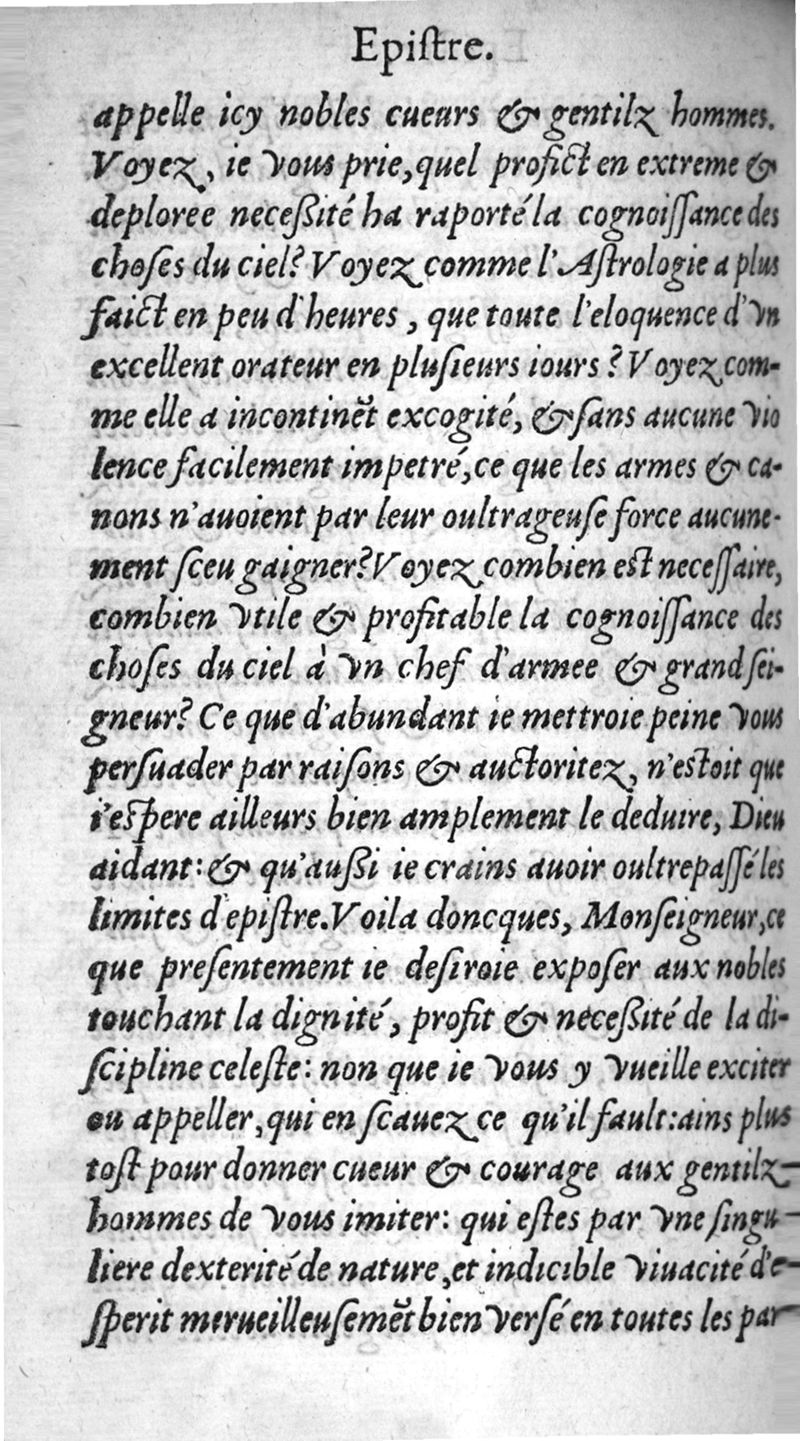 Epiſtre.
appelle icy nobles cueurs & gentilz hommes.
Voyez, ie vous prie, quel profict en extreme &
deploree neceßité ha raporté la cognoiſſance des
choſes du ciel? Voyez comme l'Aſtrologie a plus
faict en peu d'heures, que toute l'eloquence d'vn
excellent orateur en pluſieurs iours? Voyez com-
me elle a incontinēt excogité, & ſans aucune vio
lence facilement impetré, ce que les armes & ca-
nons n'auoient par leur oultrageuſe force aucune-
ment ſceu gaigner? Voyez combien est neceſſaire,
combien vtile & profitable la cognoiſſance des
choſes du ciel à vn chef d'armee & grand ſei-
gneur? Ce que d'abundant ie mettroie peine vous
perſuader par raiſons & auctoritez, n'estoit que
i'eſpere ailleurs bien amplement le deduire, Dieu
aidant: & qu'außi ie crains auoir oultrepaſſé les
limites d'epiſtre. Voila doncques, Monſeigneur, ce
que preſentement ie deſiroie expoſer aux nobles
touchant la dignité, profit & neceßité de la di-
ſcipline celeſte: non que ie vous y vueille exciter
ou appeller, qui en ſcauez ce qu'il fault: ains plus
toſt pour donner cueur & courage aux gentilz-
hommes de vous imiter: qui eſtes par vne ſingu-
liere dexterité de nature, et indicible viuacité d'e-
ſperit merueilleuſemēt bien verſé en toutes les par-